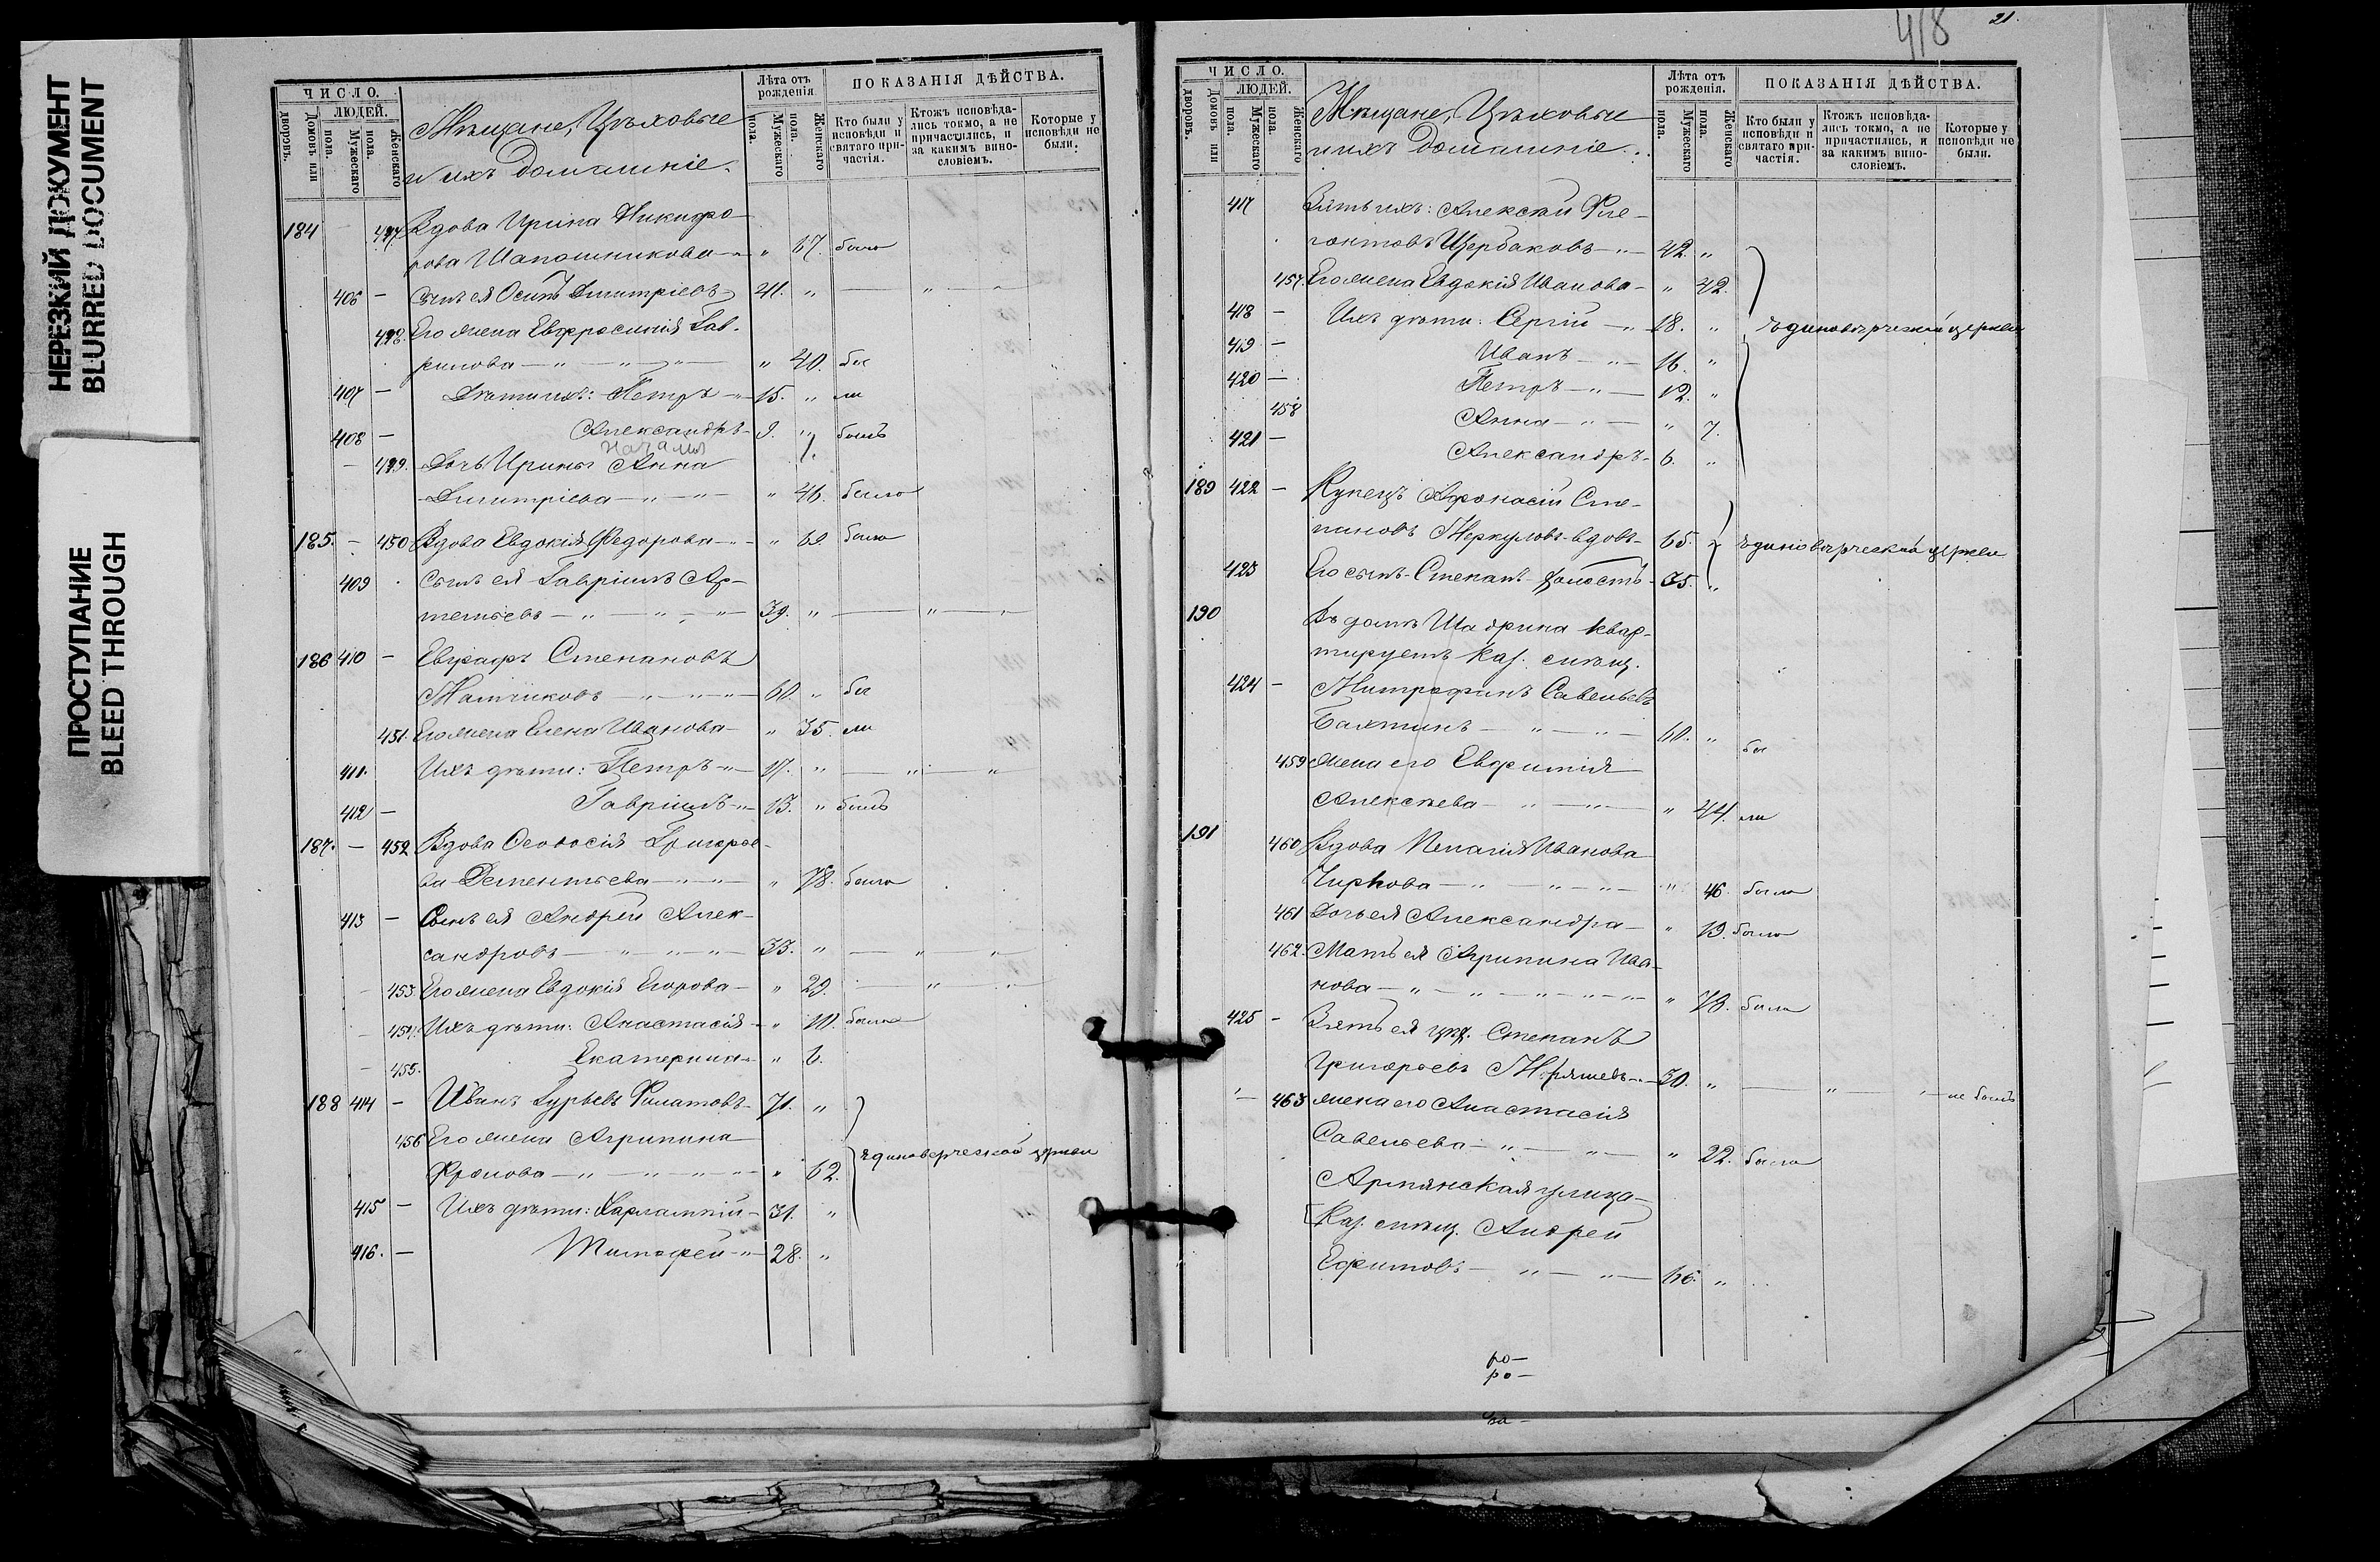 НЕРЕЗКИЙ ДОКУМЕНТ
BLURRED DOCUMENT
ПРОСТУПАНИЕ
BLEED THROUGH
ЧИСЛО.
Домовъ или дворовъ.
ЛЮДЕЙ.
Мужескаго пола.
Женскаго пола.
Мѣщане, Цѣховые
и ихъ домашніе.
Лѣта отъ рожденія
Мужескаго пола.
Женскаго пола.
ПОКАЗАНІЯ ДѢЙСТВА.
Кто были у исповѣди и святаго причастія.
Ктожъ исповѣдались токмо, а не причастились, и за какимъ винословіемъ.
Которые у исповѣди не были.
184 447 Вдова Ирина Никифо-
рова Шапошникова " 67. была
406 - Сынъ ея Осипъ Димитріевъ 41. " "
448. Его жена Евфросинія Гав-
рилова " 40. бы
407 - Дѣти ихъ: Петръ 15. " ли
408 - Александръ 9. " былъ
449. Дочь Ирины Анна
Димитріева " 46. была
185. - 450 Вдова Евдокія Федорова " 62 была
409 Сынъ ея Гавріилъ Ар-
темьевъ 39. " "
186 410 - Евграфъ Степановъ
60. " бы
451. Его жена Елена Иванова " 35. ли
411. Ихъ дѣти: Петръ 17. " "
412 - Гавріилъ 13. " былъ
187. - 452 Вдова Ѳеодосія Григорье-
ва Дементьева " 78. была
413 - Сынъ ея Андрей Алек-
сандровъ 33. " "
453. Его жена Евдокія Егорова " 29. "
454. Ихъ дѣти: Анастасія " 10. была
455. Екатерина " 6.
188 414 - Иванъ Гурьевъ Филатовъ 71. "
456 Его жена Агрипина
Фролова " 62. Единовѣрческой церкви
415 - Ихъ дѣти: Харлампій 31. "
416. - Тимофей 28. "
418
21.
ЧИСЛО.
Домовъ или дворовъ.
ЛЮДЕЙ.
Мужескаго пола.
Женскаго пола.
Мѣщане, Цѣховые
и ихъ домашніе.
Лѣта отъ рожденія.
Мужескаго пола.
Женскаго пола.
ПОКАЗАНІЯ ДѢЙСТВА.
Кто были у исповѣди и святаго причастія.
Ктожъ исповѣдались токмо, а не причастились, и за какимъ винословіемъ.
Которые у исповѣди не были.
417 Зять ихъ: Алексѣй Фле-
гонтовъ Щербаковъ 42. "
457. Его жена Евдокія Иванова " 42.
418 - Ихъ дѣти: Сергій 18. " Единовѣрческой церкви
419 - Иванъ 16. "
420 - Петръ 12. "
458 Анна " 7.
421 - Александръ 6. "
189 422 - Купецъ Афонасій Сте-
пановъ Меркуловъ вдовъ 65. " Единовѣрческой церкви
423 Его сынъ Степанъ холостъ 35. "
190 Въ домѣ Шадрина квар-
тируетъ Каз.
424 - Митрофанъ Савельевъ
Бахтинъ 60. " бы
459 жена его Евфимія
Алексѣева " 44. ли
191 460 Вдова Пелагія Иванова
Чиркова " 46. была
461 Дочь ея Александра " 19. была
462. Мать ея Агрипина Ива-
нова " 78. была
425 - Зять ея цех. Степанъ
Григорьевъ 30. " " не былъ
463 жена его Анастасія
Савельева " 22. была
Армянская улица
Каз. Андрей
Ефимовъ 66. "
ро-
ро-
ва-